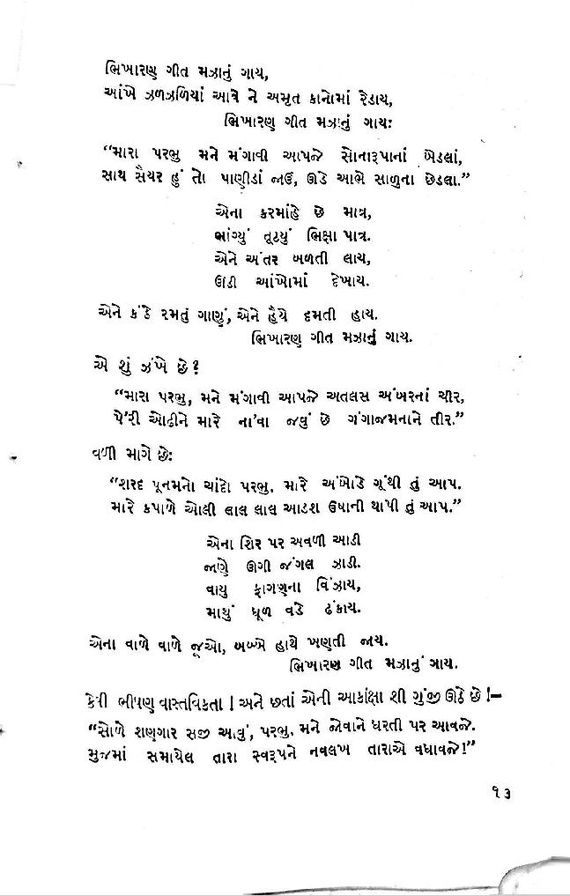 ભિખારણ ગીત મઝાનું ગાય,
આંખે ઝળઝળિયાં આવે ને અમૃત કાનોમાં રેડાય,
ભિખારણ ગીત મઝાનું ગાયઃ
“મારા પરભુ મને મંગાવી આપજે સોનારૂપાનાં બેડલાં,
સાથ સૈયર હું તો પાણીડાં જાઉં, ઊડે આભે સાળુના છેડલા.”
એના કરમાંહે છે માત્ર,
ભાંગ્યું તૂટયું ભિક્ષા પાત્ર.
એને અંતર બળતી લાય,
ઊંડી આંખોમાં દેખાય.
એને કંઠે રમતું ગાણું, એને હૈયે દમતી હાય.
ભિખારણ ગીત મઝાનું ગાય.
એ શું ઝંખે છે?
“મારા પરભુ, મને મંગાવી આપજે અતલસ અંબરનાં ચીર,
પે’રી ઓઢીને મારે ના’વા જવું છે ગંગાજમનાને તીર.”
વળી માગે છેઃ
“શરદ પૂનમનો ચાંદો પરભુ, મારે અંબોડે ગૂંથી તું આપ.
મારે કપાળે ઓલી લાલ લાલ આડશ ઉષાની થાપી તું આપ.”
એના શિર પર અવળી આડી
જાણે ઊગી જંગલ ઝાડી.
વાયુ ફાગણના વિંઝાય,
માથું ધૂળ વડે ઢંકાય.
એના વાળે વાળે જૂઓ, બબ્બે હાથે ખણતી જાય.
ભિખારણ ગીત મઝાનું ગાય.
કેવી ભીષણ વાસ્તવિકતા ! અને છતાં એની આકાંક્ષા શી ગુંજી ઊઠે છે !–
“સોળે શણગાર સજી આવું, પરભુ, મને જોવાને ધરતી પર આવજે.
મુજમાં સમાયેલ તારા સ્વરૂપને નવલખ તારાએ વધાવજે !”
૧૩